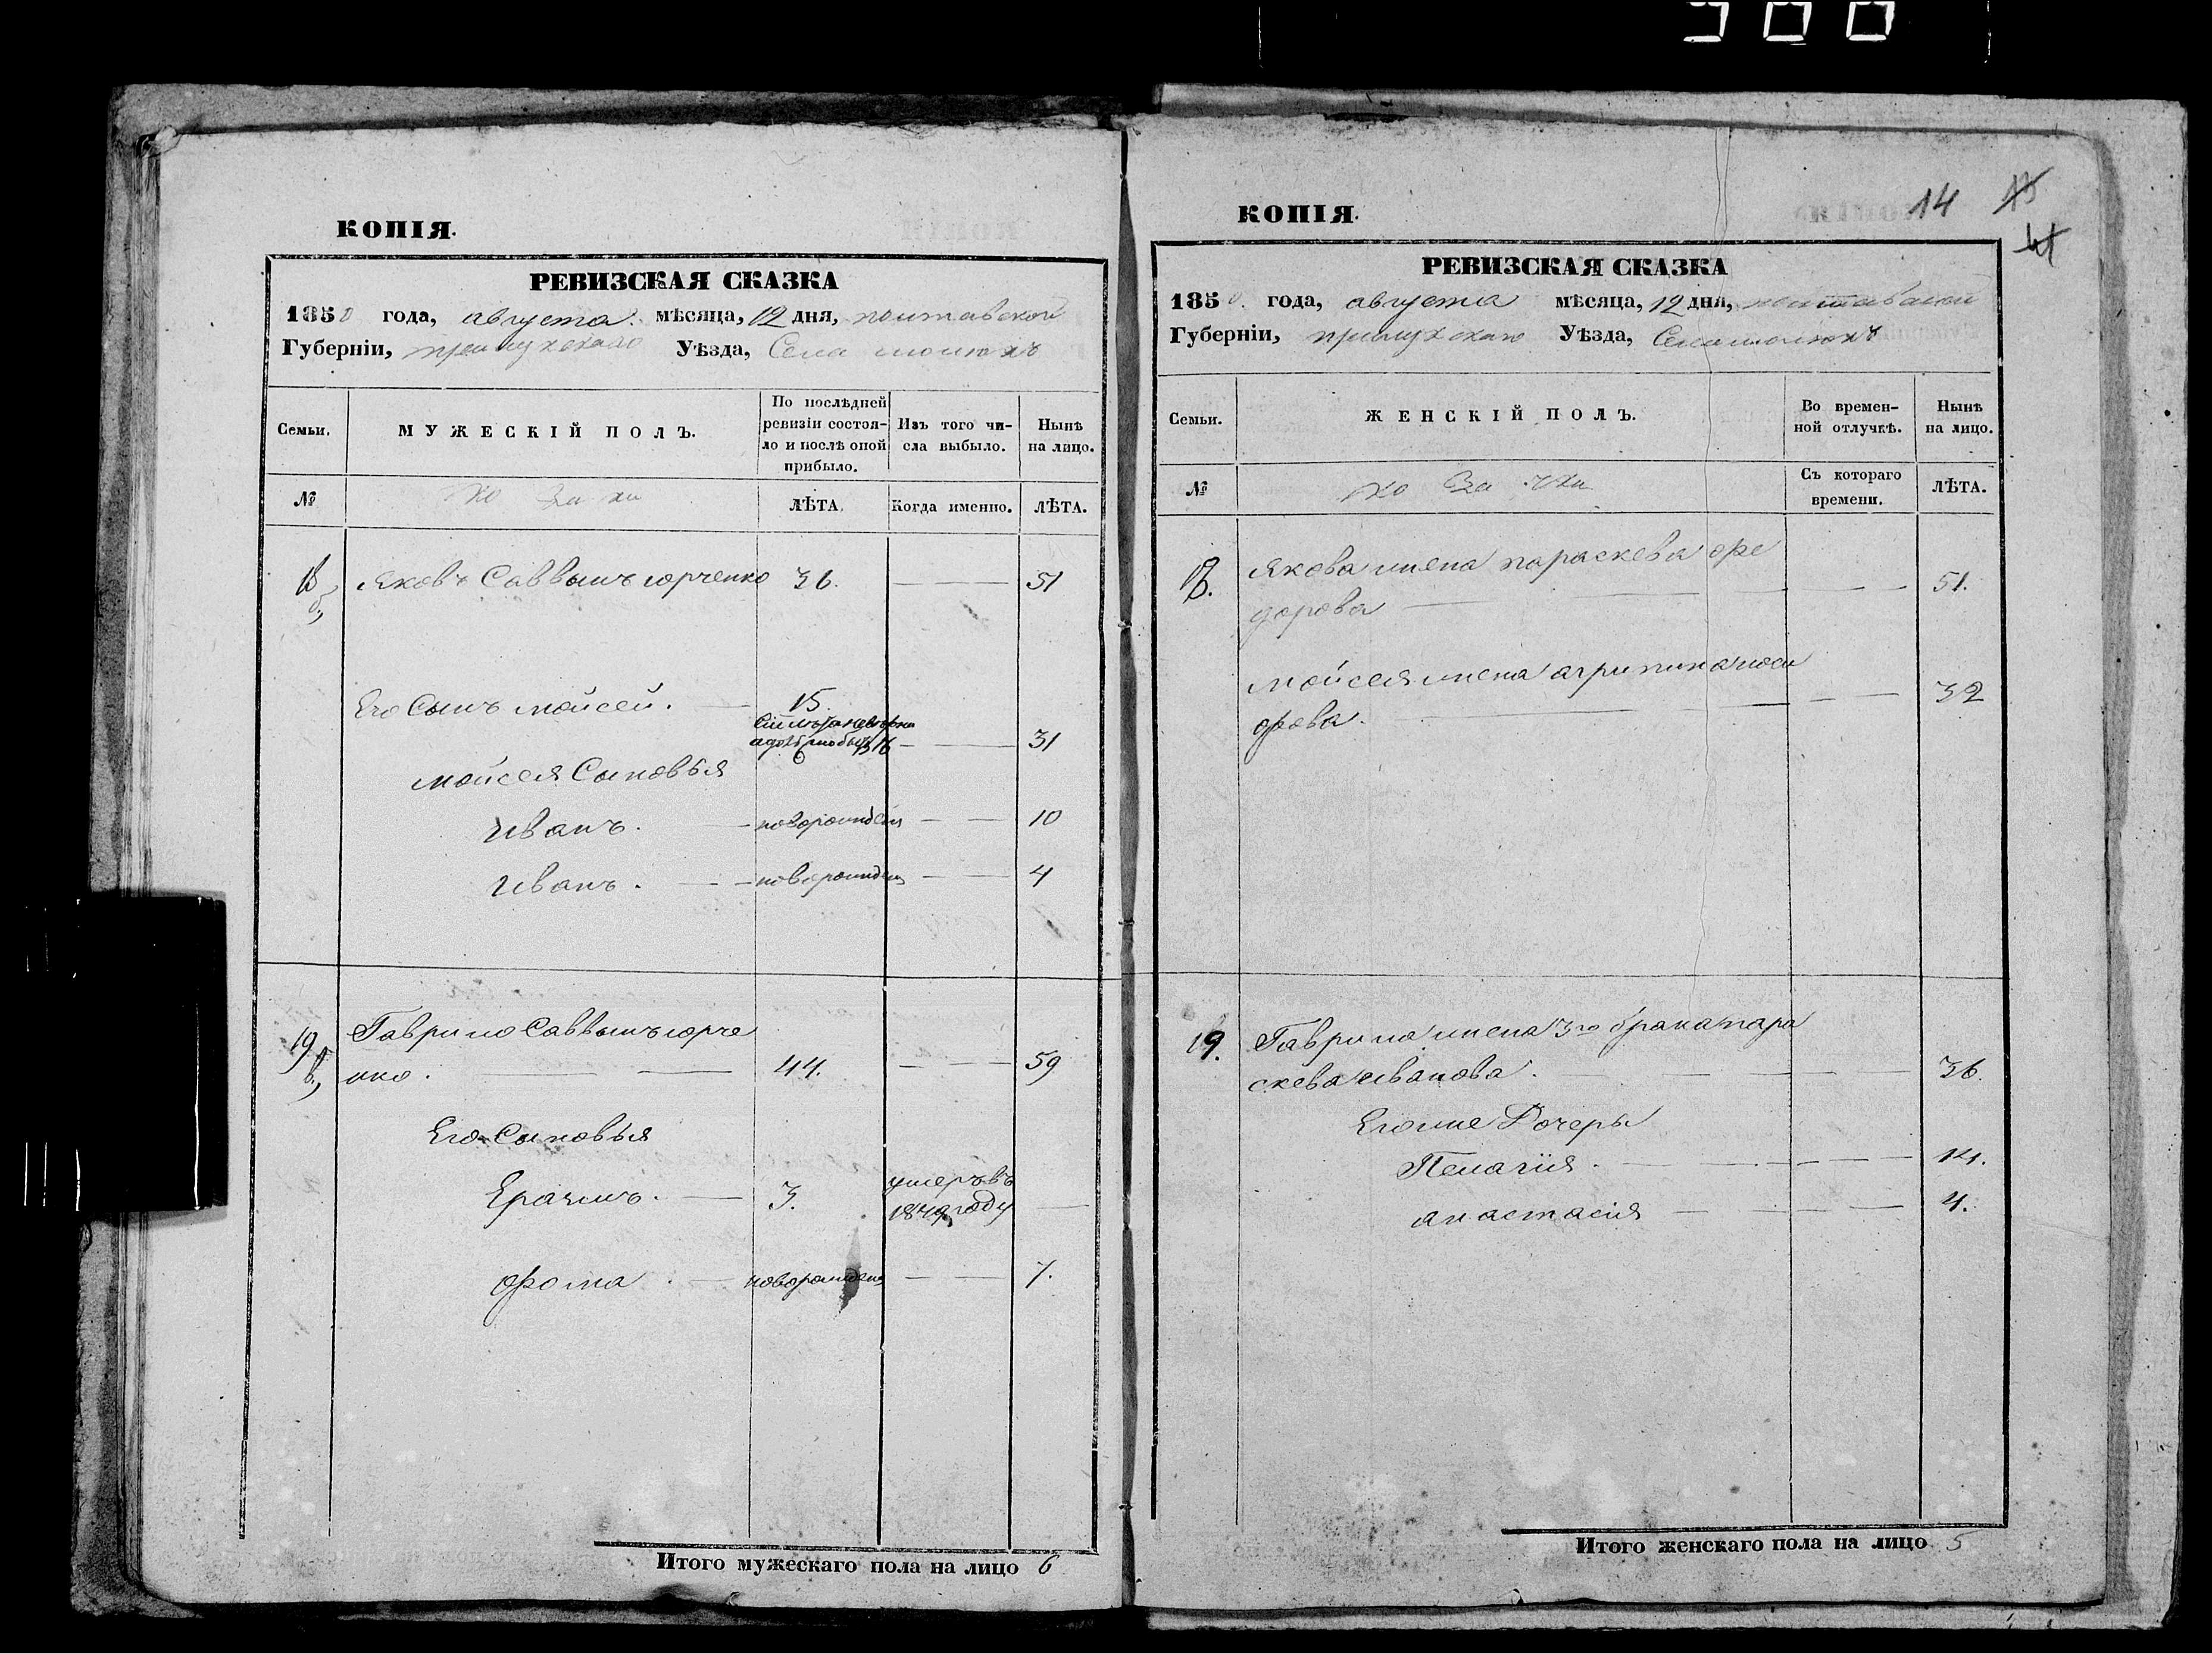 КОПІЯ.
РЕВИЗСКАЯ СКАЗКА
1850 года, августа. мѣсяца, 12 дня, полтавской
Губерніи, прилукскаго Уѣзда, Села
Семьи.
МУЖЕСКІЙ ПОЛЪ.
По послѣдней ревизіи состоя-
ло и послѣ оной прибыло.
Изъ того чи-
сла выбыло.
Нынѣ на лицо.
№
Ко за ки
ЛѢТА.
Когда именно.
ЛѢТА.
18 Яковъ Саввинъ юрченко 36. 51
Его Сынъ Мойсей. 15.
31
Мойсея Сыновья
Иванъ. новорожден 10
Иванъ. новорожден 4
19 Гаврило Саввинъ юрче
нко. 44. 59
Его Сыновья
3. умеръ въ
1849 году
Фома новорожден 7.
Итого мужескаго пола на лицо 6
КОПІЯ.
14
РЕВИЗСКАЯ СКАЗКА
1850. года, августа мѣсяца, 12 дня, полтавской
Губерніи, прилукскаго Уѣзда, Села
Семьи.
ЖЕНСКІЙ ПОЛЪ.
Во времен-
ной отлучкѣ.
Нынѣ
на лицо.
№
Ко за чки
Съ котораго
времени.
ЛѢТА.
18. Якова жена параскева фе
дорова 51.
Мойсея жена агрипина иоси
фова. 32
19. Гаврила жена 3го брака пара
скева иванова. 36.
Егоже Дочеры
Пелагія. 14.
анастасія 4.
Итого женскаго пола на лицо 5